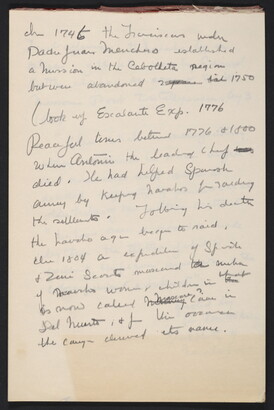 In 1746 the Franciscans under
Padre Juan Menchero established
a Mission in the Cebolleta region
but were abandoned 1750
(look up Escalante Exp. 1776
Peaceful times between 1776 & 1800
when Antonio the leading Chief
died. He had helped Spanish
army by keeping Navahos fr raiding
the settlements. Following his death
the Navahos again began to raid.
In 1804 an expedition of Spanish
& Zuni Scouts massacred the number
of Navaho women & children in
is now called Massacre? Cave in
Del Muerto, & fr this occurrence
the canyon derived its name.